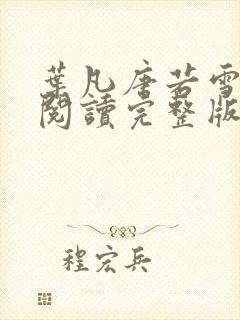 葉凡唐若雪
閱讀完整版
程宏兵